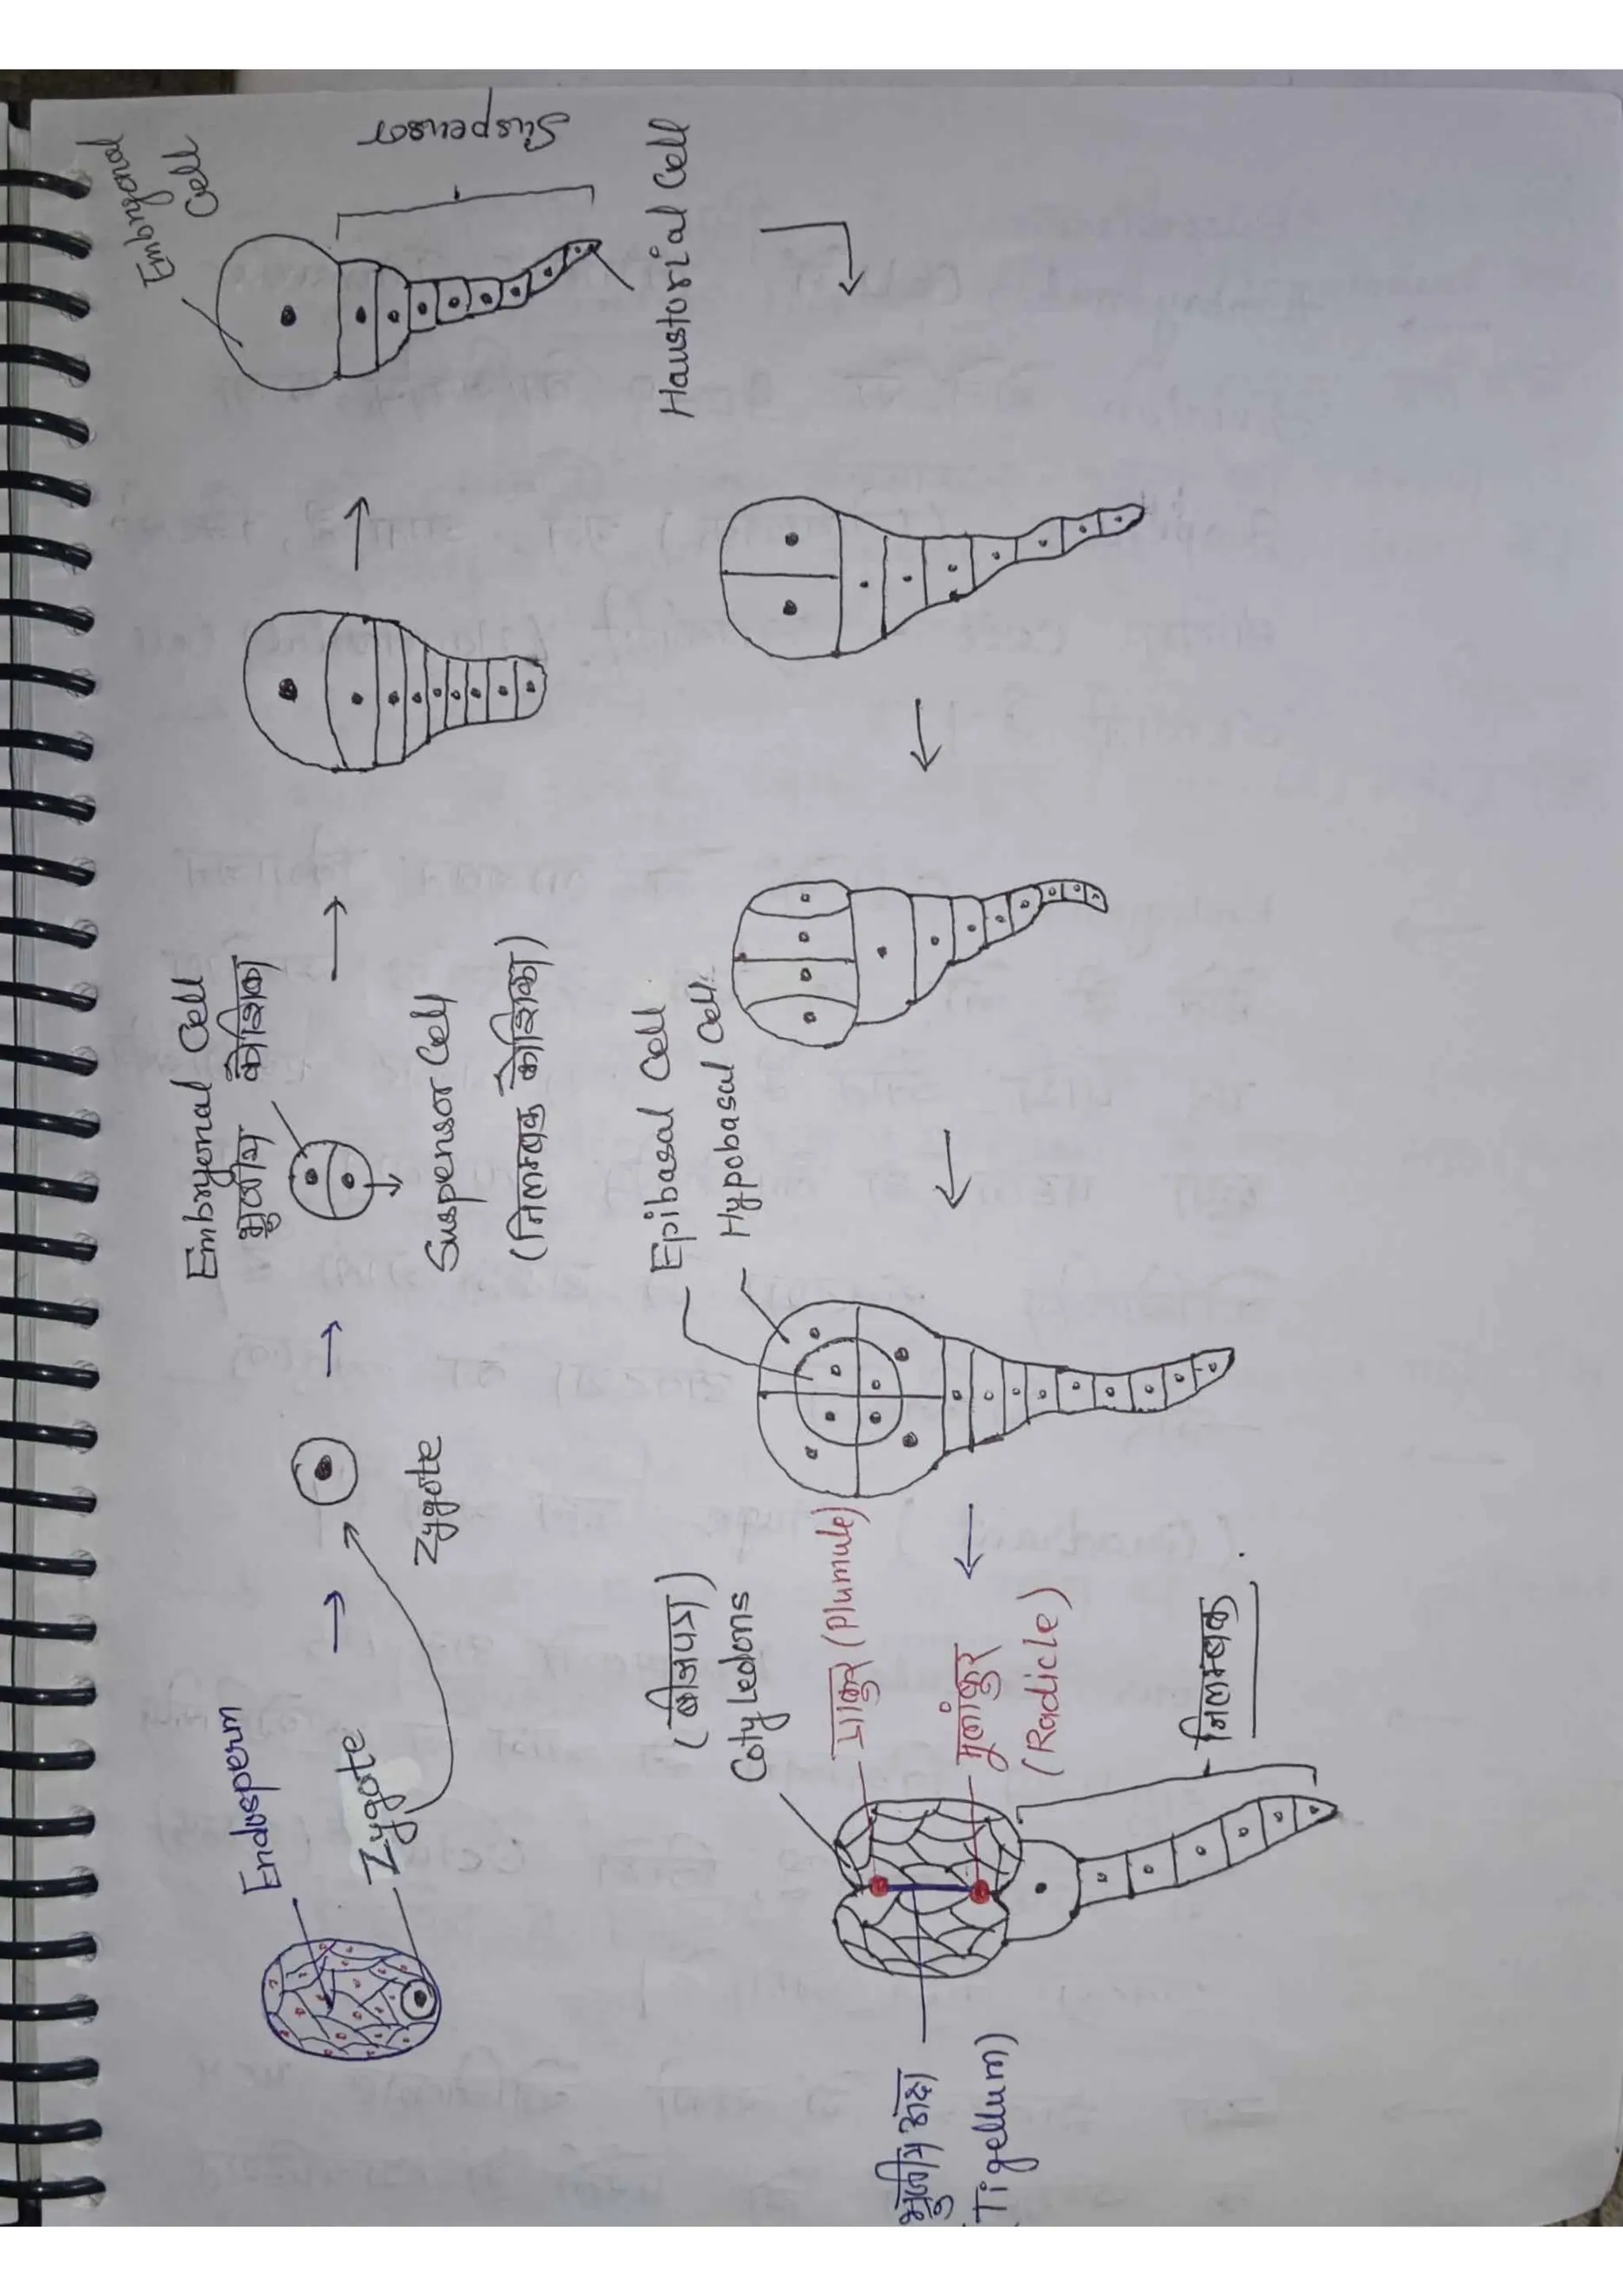 Endosperm
Zygote
Zygote
Embryonal Cell
भ्रुणीय कोशिका
Suspensor Cell
(निलम्बक कोशिका)
Embryonal
Cell
Suspensor
Haustorial Cell
Epibasal Cell
Hypobasal Cell
(बीजपत्र)
Cotyledons
प्रांकुर (Plumule)
मूलांकुर
(Radicle)
निलम्बक
भ्रुणीय अक्ष
(Tigellum)